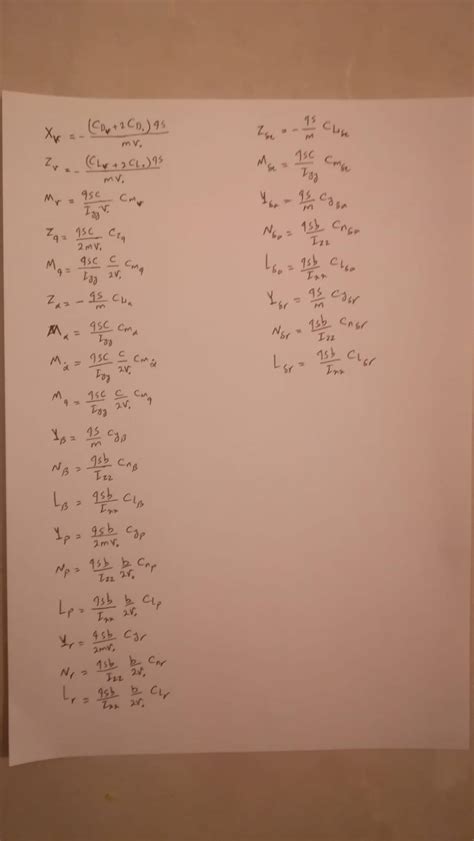 X_v = - (C_Dv + 2C_D.) qs / mv.
Z_v = - (C_Lv + 2C_L.) qs / mv.
M_v = qsc / I_yy v. C_mv
Z_q = qsc / 2mv. C_zq
M_q = qsc / I_yy c / 2v. C_mq
Z_α = - qs / m C_Lα
M_α = qsc / I_yy C_mα
M_α̇ = qsc / I_yy c / 2v. C_mα̇
M_q = qsc / I_yy c / 2v. C_mq
Y_β = qs / m C_yβ
N_β = qsb / I_zz C_nβ
L_β = qsb / I_xx C_Lβ
Y_p = qsb / 2mv. C_yp
N_p = qsb / I_zz b / 2v. C_np
L_p = qsb / I_xx b / 2v. C_Lp
Y_r = qsb / 2mv. C_yr
N_r = qsb / I_zz b / 2v. C_nr
L_r = qsb / I_xx b / 2v. C_Lr
Z_δe = - qs / m C_Lδe
M_δe = qsc / I_yy C_mδe
Y_δa = qs / m C_yδa
N_δa = qsb / I_zz C_nδa
L_δa = qsb / I_xx C_Lδa
Y_δr = qs / m C_yδr
N_δr = qsb / I_zz C_nδr
L_δr = qsb / I_xx C_Lδr